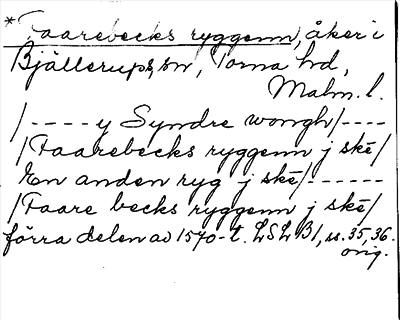 *Faarebecks ryggenn, åker i
Bjällerups sn, Torna hd,
Malm. l.
/---- y Syndre wongh/----
/Faarebecks ryggenn j skē/
En anden ryg j skē/------
/Faare becks ryggenn j skē/
förra delen av 1570-t. LSLB1, ss. 35, 36.
orig.